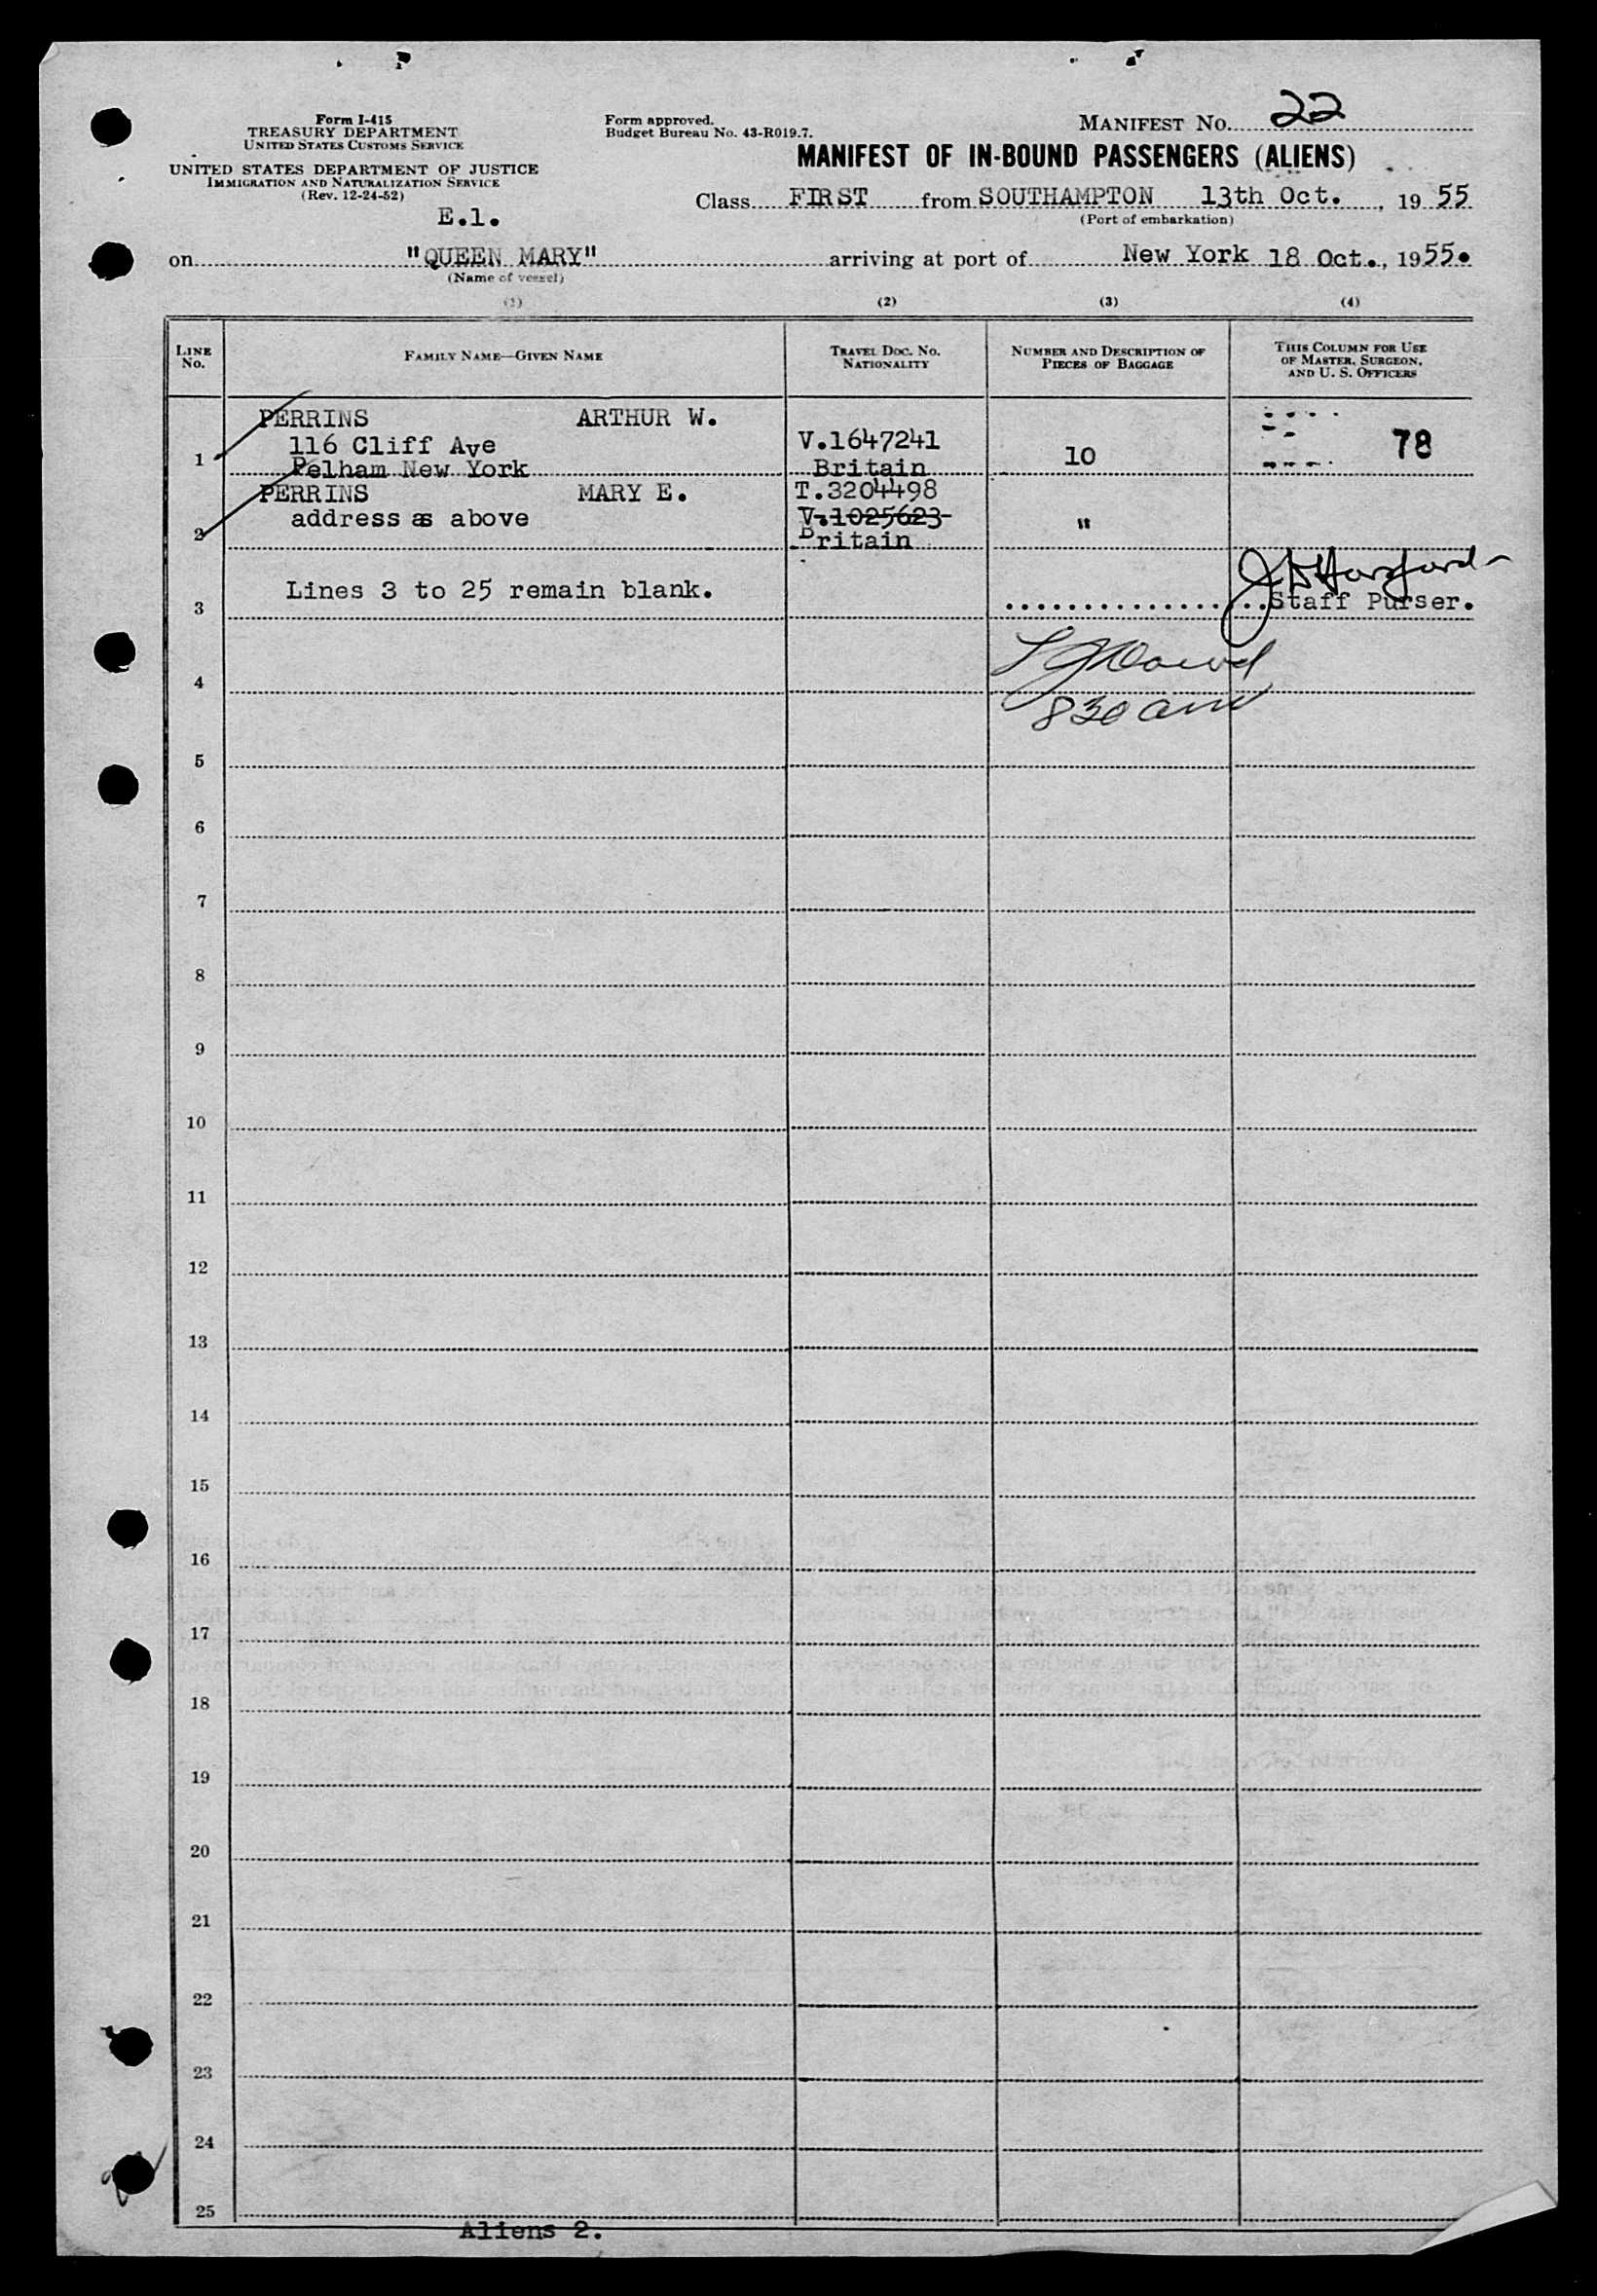 Form I-415
TREASURY DEPARTMENT
UNITED STATES CUSTOMS SERVICE
UNITED STATES DEPARTMENT OF JUSTICE
IMMIGRATION AND NATURALIZATION SERVICE
(Rev. 12-24-52)
E.1.
Form approved.
Budget Bureau No. 43-R019.7.
MANIFEST NO. 22
MANIFEST OF IN-BOUND PASSENGERS (ALIENS)
Class FIRST from SOUTHAMPTON 13th Oct., 19 55
(Port of embarkation)
on "QUEEN MARY" arriving at port of New York 18 Oct., 1955.
(Name of vessel)
(1) (2) (3) (4)
LINE NO.
FAMILY NAME—GIVEN NAME
TRAVEL DOC. NO.
NATIONALITY
NUMBER AND DESCRIPTION OF
PIECES OF BAGGAGE
THIS COLUMN FOR USE
OF MASTER, SURGEON,
AND U. S. OFFICERS
1 PERRINS ARTHUR W.
116 Cliff Ave
Pelham New York
V.1647241
Britain
10
78
2 PERRINS MARY E.
address as above
T.3204498
V.1025623
Britain
"
3 Lines 3 to 25 remain blank.
Staff Purser.
4
830 am
5
6
7
8
9
10
11
12
13
14
15
16
17
18
19
20
21
22
23
24
25
Aliens 2.